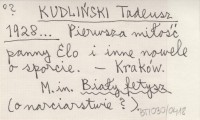 o?
KUDLIŃSKI Tadeusz
1928.... Pierwsza miłość
panny Elo i inne nowele
o sporcie. – Kraków.
M.in. Biały fetysz
(o narciarstwie?)